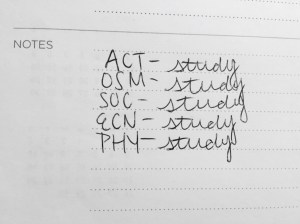 NOTES
ACT- study
OSM- study
SOC- study
ECN- study
PHY- study